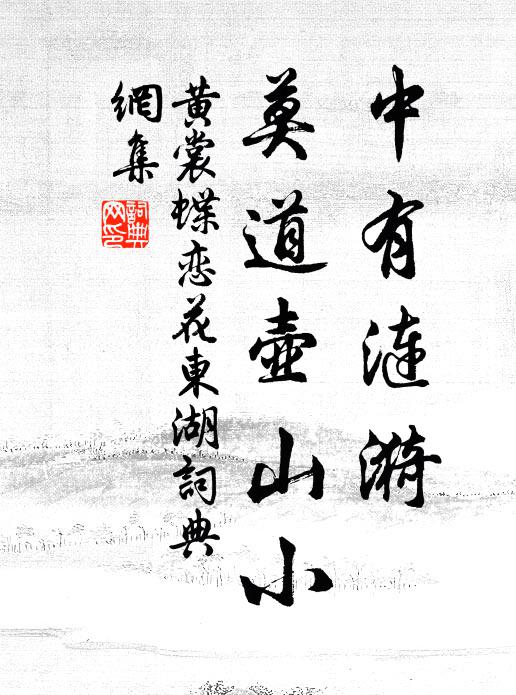 中有涟漪
莫道壺山小
黄裳蝶恋花東湖詞典
網集
詞典
网印